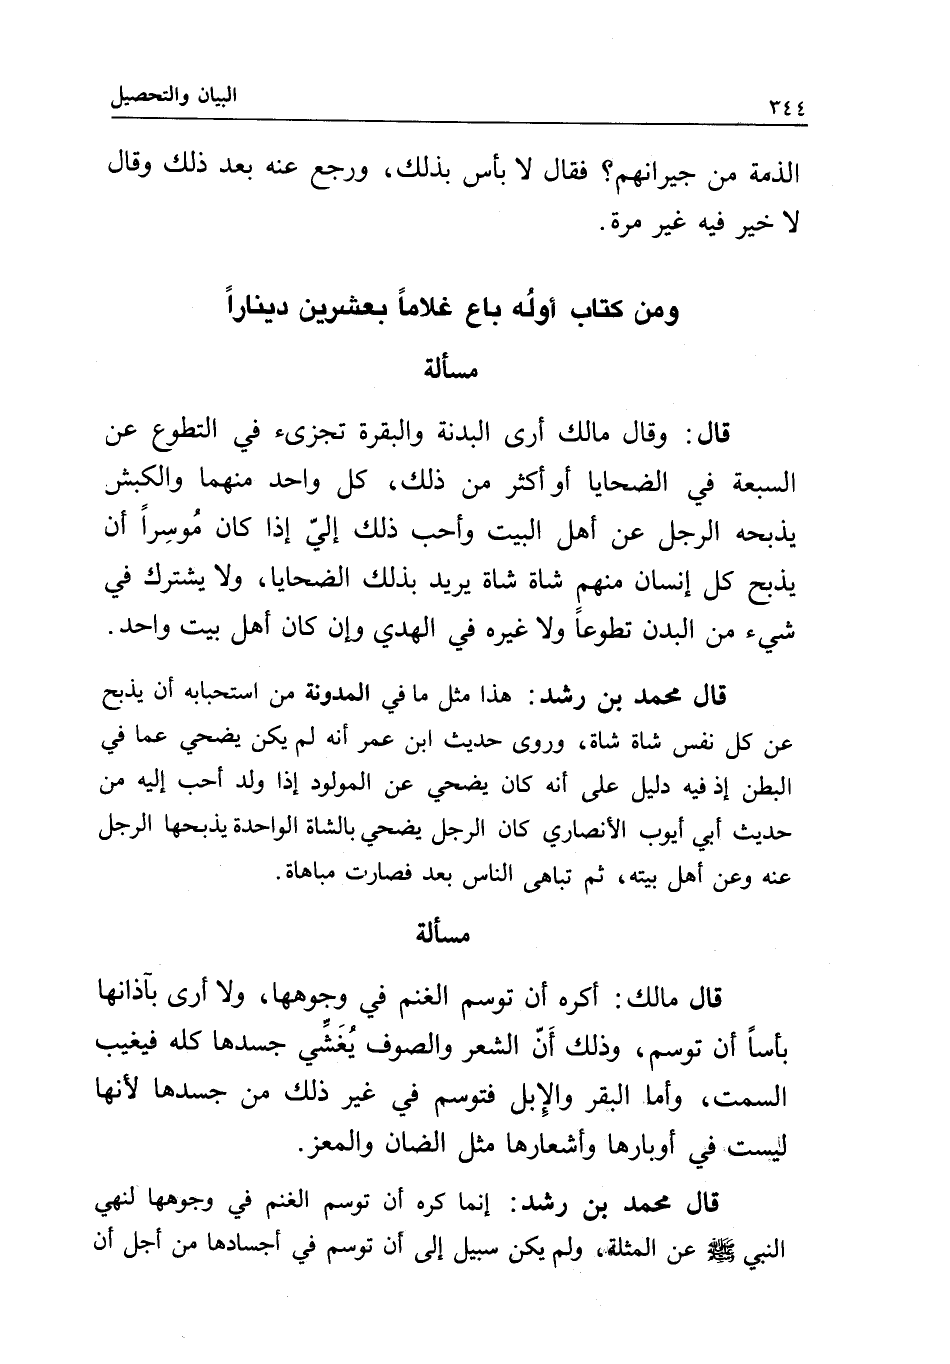 ٣٤٤
البيان والتحصيل
الذمة من جيرانهم؟ فقال لا بأس بذلك، ورجع عنه بعد ذلك وقال
لا خير فيه غير مرة.
ومن كتاب أولُه باع غلاماً بعشرين ديناراً
مسألة
قال: وقال مالك أرى البدنة والبقرة تجزىء في التطوع عن
السبعة في الضحايا أو أكثر من ذلك، كل واحد منهما والكبش
يذبحه الرجل عن أهل البيت وأحب ذلك إليّ إذا كان مُوسِراً أن
يذبح كل إنسان منهم شاة شاة يريد بذلك الضحايا، ولا يشترك في
شيء من البدن تطوعاً ولا غيره في الهدي وإن كان أهل بيت واحد.
قال محمد بن رشد: هذا مثل ما في المدونة من استحبابه أن يذبح
عن كل نفس شاة شاة، وروى حديث ابن عمر أنه لم يكن يضحي عما في
البطن إذ فيه دليل على أنه كان يضحي عن المولود إذا ولد أحب إليه من
حديث أبي أيوب الأنصاري كان الرجل يضحي بالشاة الواحدة يذبحها الرجل
عنه وعن أهل بيته، ثم تباهى الناس بعد فصارت مباهاة.
مسألة
قال مالك: أكره أن توسم الغنم في وجوهها، ولا أرى بآذانها
بأساً أن توسم، وذلك أَنّ الشعر والصوف يُغَشِّي جسدها كله فيغيب
السمت، وأما البقر والإِبل فتوسم في غير ذلك من جسدها لأنها
ليست في أوبارها وأشعارها مثل الضان والمعز.
قال محمد بن رشد: إنما كره أن توسم الغنم في وجوهها لنهي
النبي ﷺ عن المثلة، ولم يكن سبيل إلى أن توسم في أجسادها من أجل أن